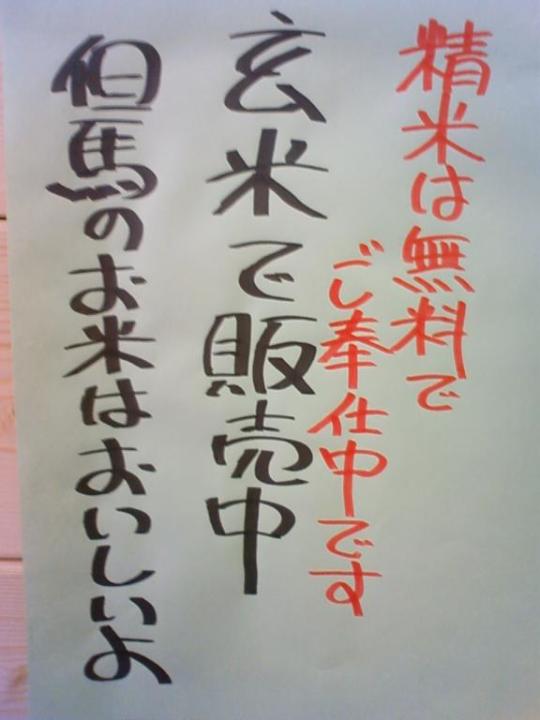 精米は無料で
ご奉仕中です
玄米で販売中
但馬のお米はおいしいよ